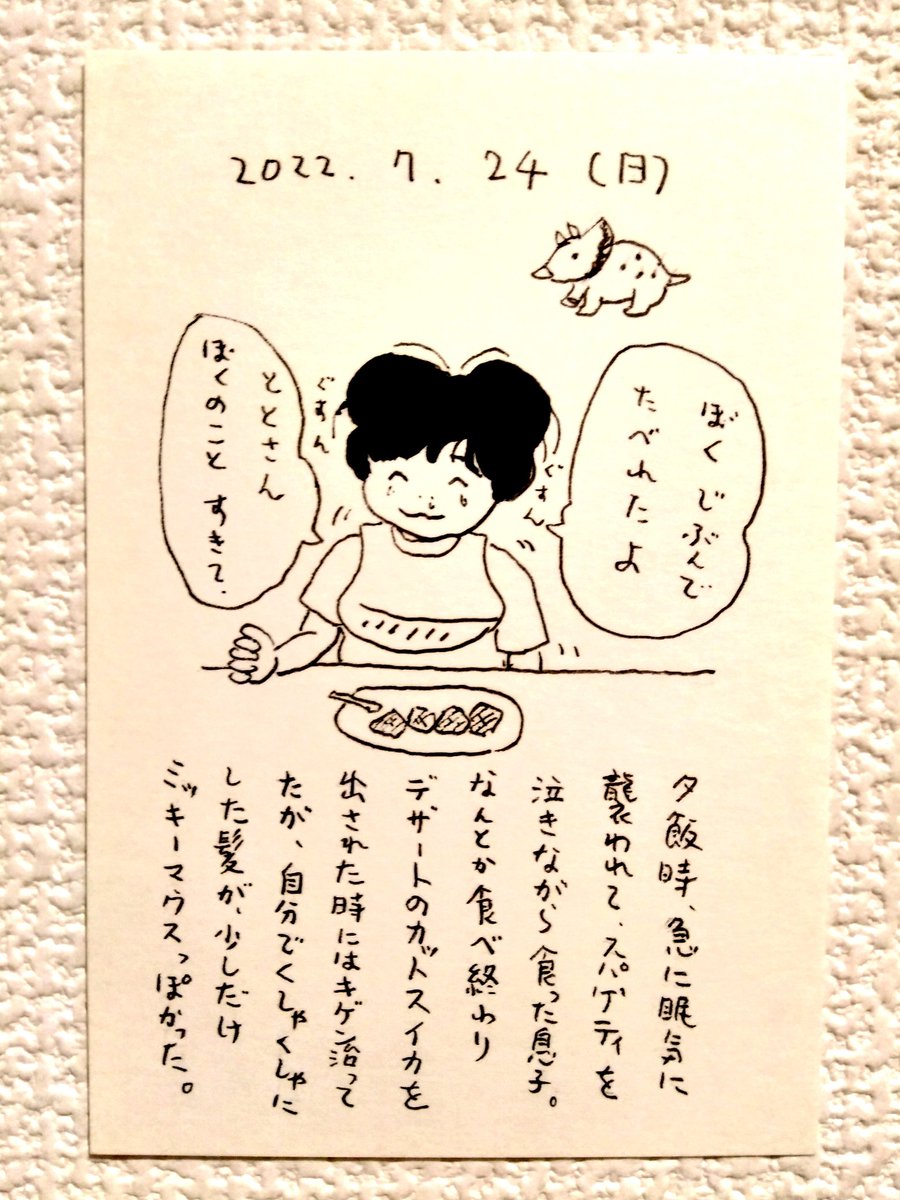 2022. 7. 24 (日)
ぼく じぶんで
たべれたよ
ぐすん
ぐすん
ととさん
ぼくのこと すきて.
夕飯時、急に眠気に
襲われて、スパゲティを
泣きながら食った息子。
なんとか食べ終わり
デザートのカットスイカを
出された時にはキゲン治って
たが、自分でくしゃくしゃに
した髪が、少しだけ
ミッキーマウスっぽかった。